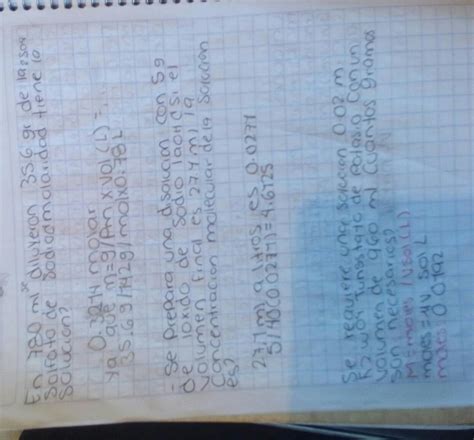 En 780 ml se diluyeron 35.6 gr de
Sulfato de Sodio molaridad tiene la
Solución?
0.3214 molar
ya que m=g/Pm x Vol (L) =
35.6g/142g/molx0.78L
- Se prepara una disolución con 5g
de de Sodio si el
Volumen final es 27.1 ml la
Concentracion molecular de la Solución
es?
27.1 ml a litros es 0.0271
5/40(0.0271)=4.6125
Se requiere una solución 0.02 m
de potasio con un
Volumen de 960 ml Cuantos gramos
son necesarios?
M=moles/Vsol(L)
moles=
moles 0.0192